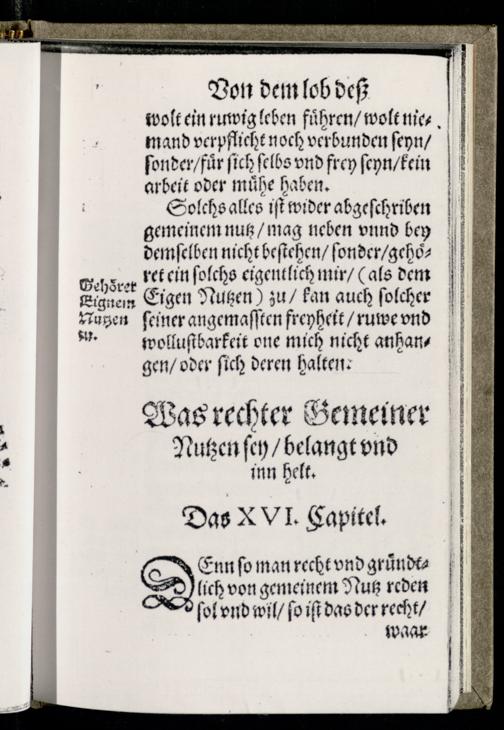 Von dem lob deß
wolt ein ruwig leben führen/ wolt nie⸗
mand verpflicht noch verbunden seyn/
sonder/für sich selbs vnd frey seyn/kein
arbeit oder mühe haben.
Solchs alles ist wider abgeschriben
gemeinem nutz/ mag neben vnnd bey
demselben nicht bestehen/ sonder/gehö⸗
ret ein solchs eigentlich mir/ (als dem
Eigen Nutzen) zu/ kan auch solcher
seiner angemassten freyheit/ ruwe vnd
wollustbarkeit one mich nicht anhan⸗
gen/ oder sich deren halten.
Gehöret
Eignem
Nutzen
zu.
Was rechter Gemeiner
Nutzen sey/ belangt vnd
inn helt.
Das XVI. Capitel.
DEnn so man recht vnd gründt⸗
lich von gemeinem Nutz reden
sol vnd wil/ so ist das der recht/
waar